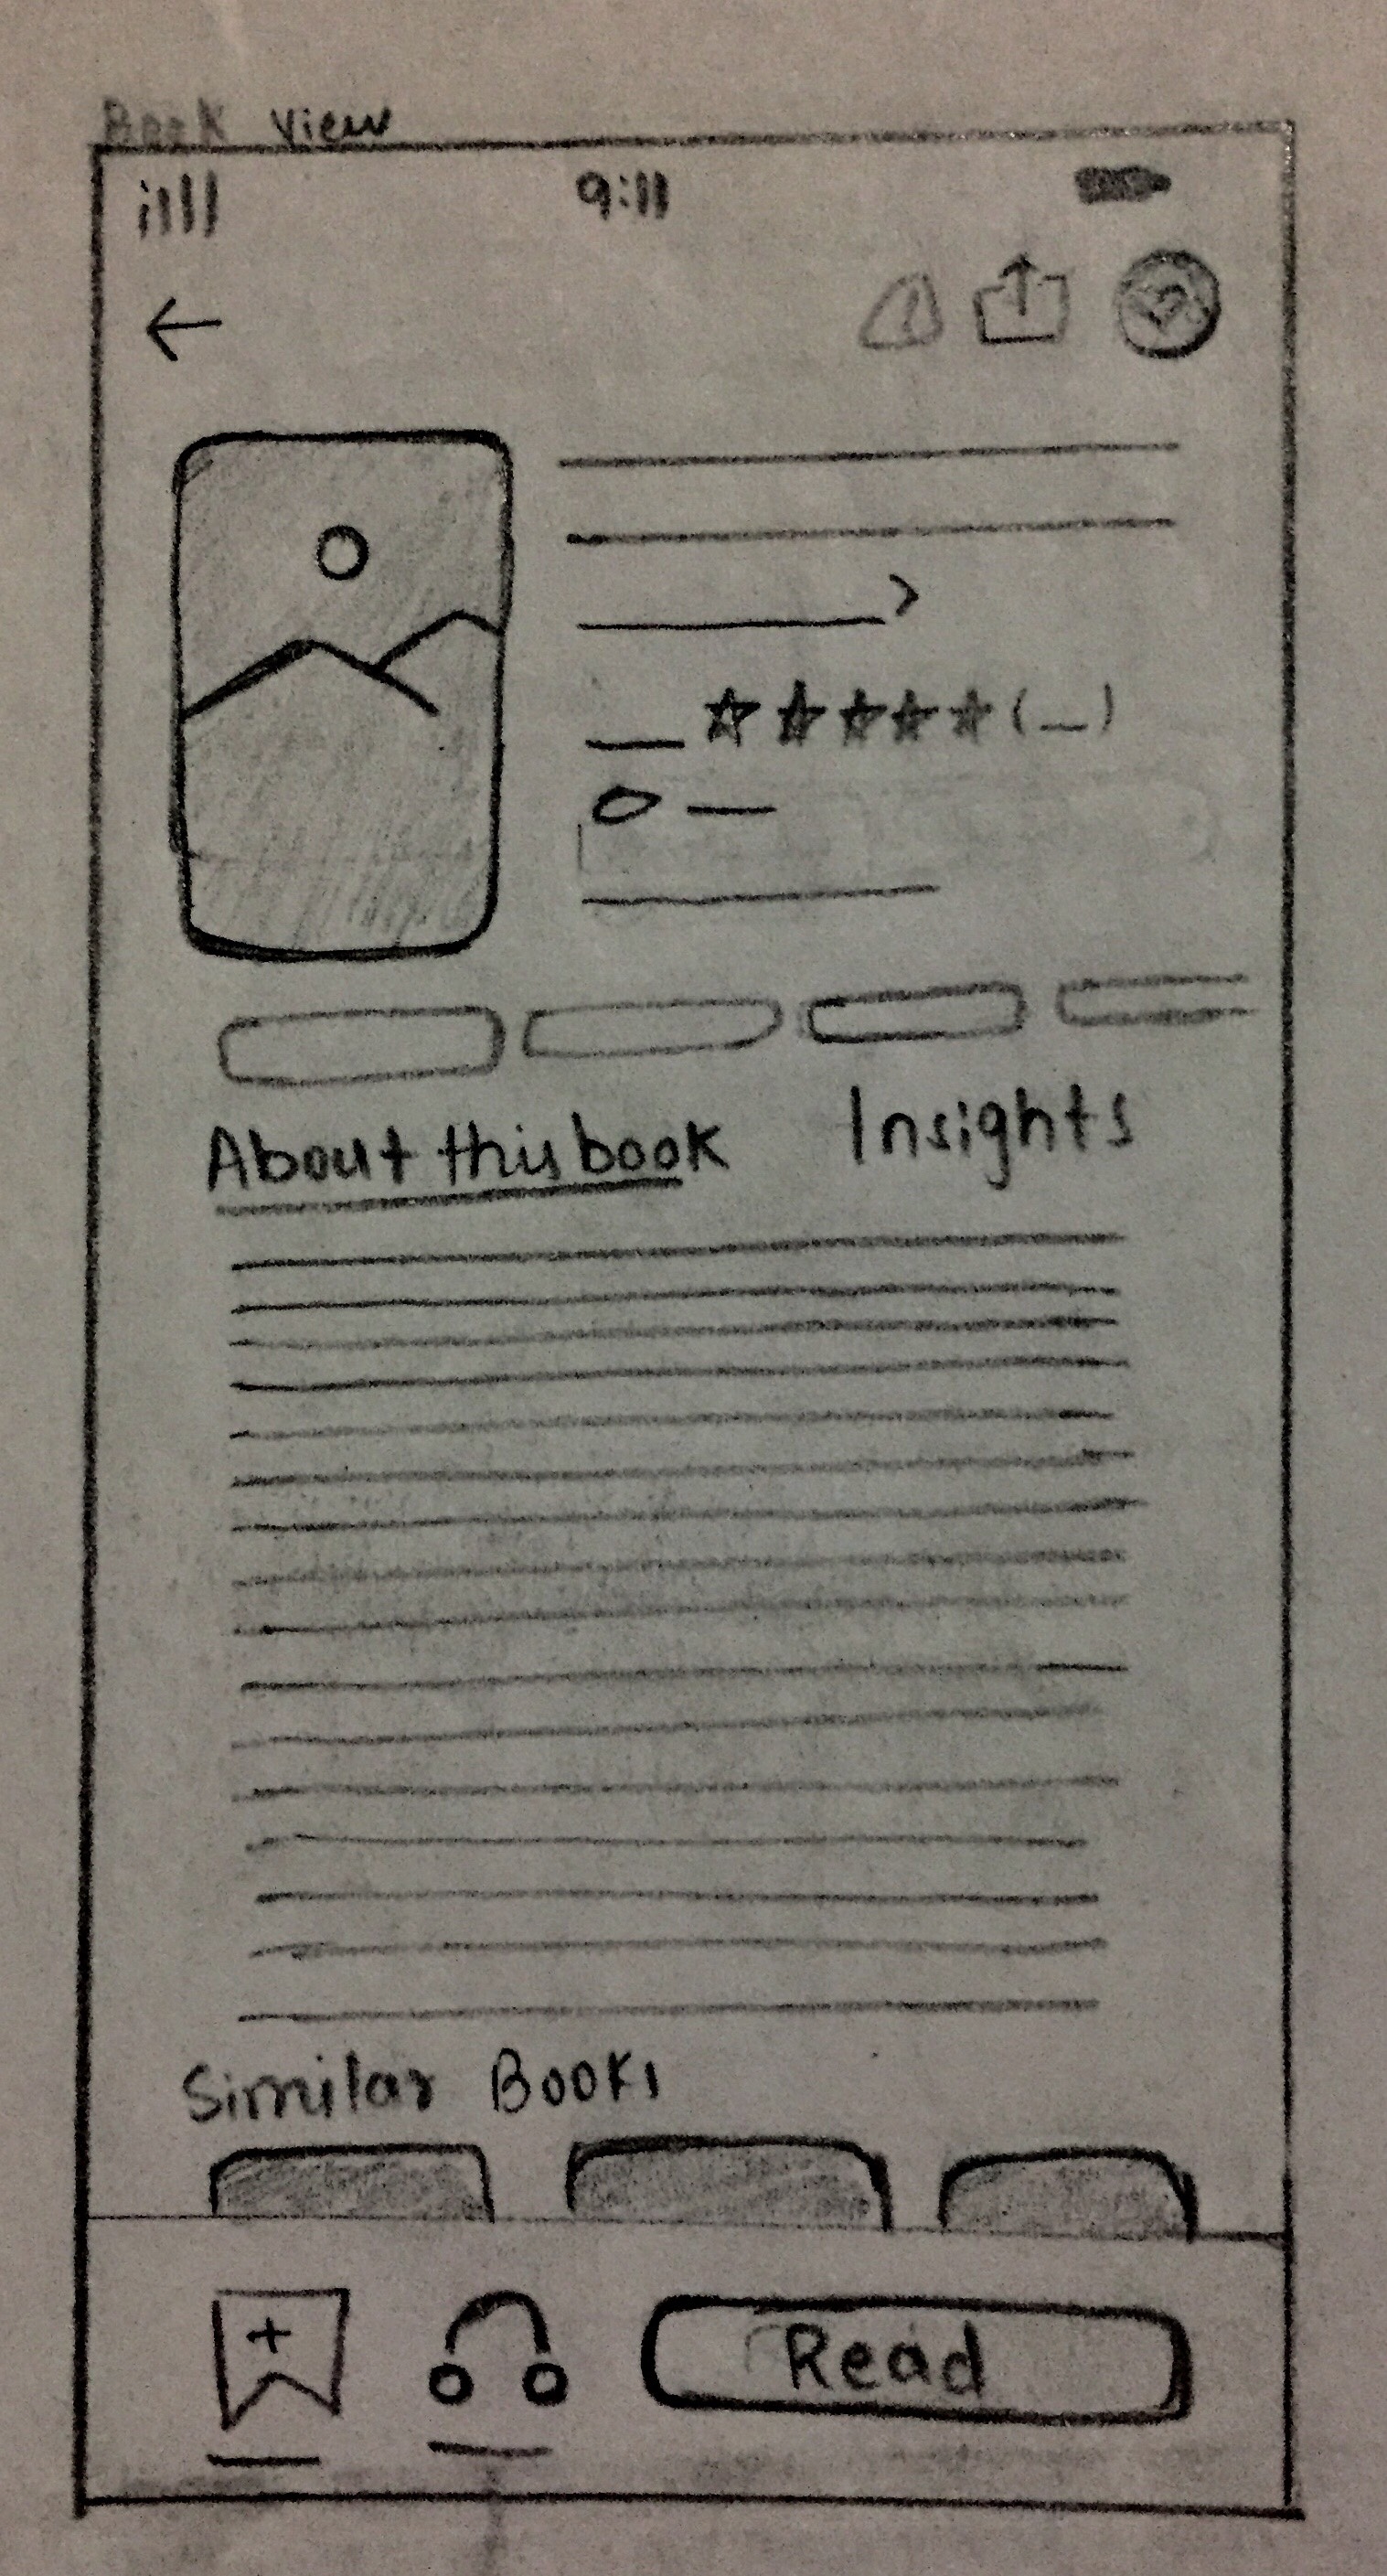 Book View
9:11
(_)
About this book Insights
Similar Books
Read